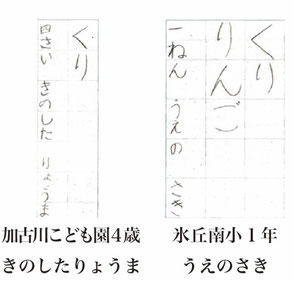 くり
りんご
一ねん うえの さき
氷丘南小１年
うえのさき
くり
四さい きのした りょうま
加古川こども園４歳
きのしたりょうま